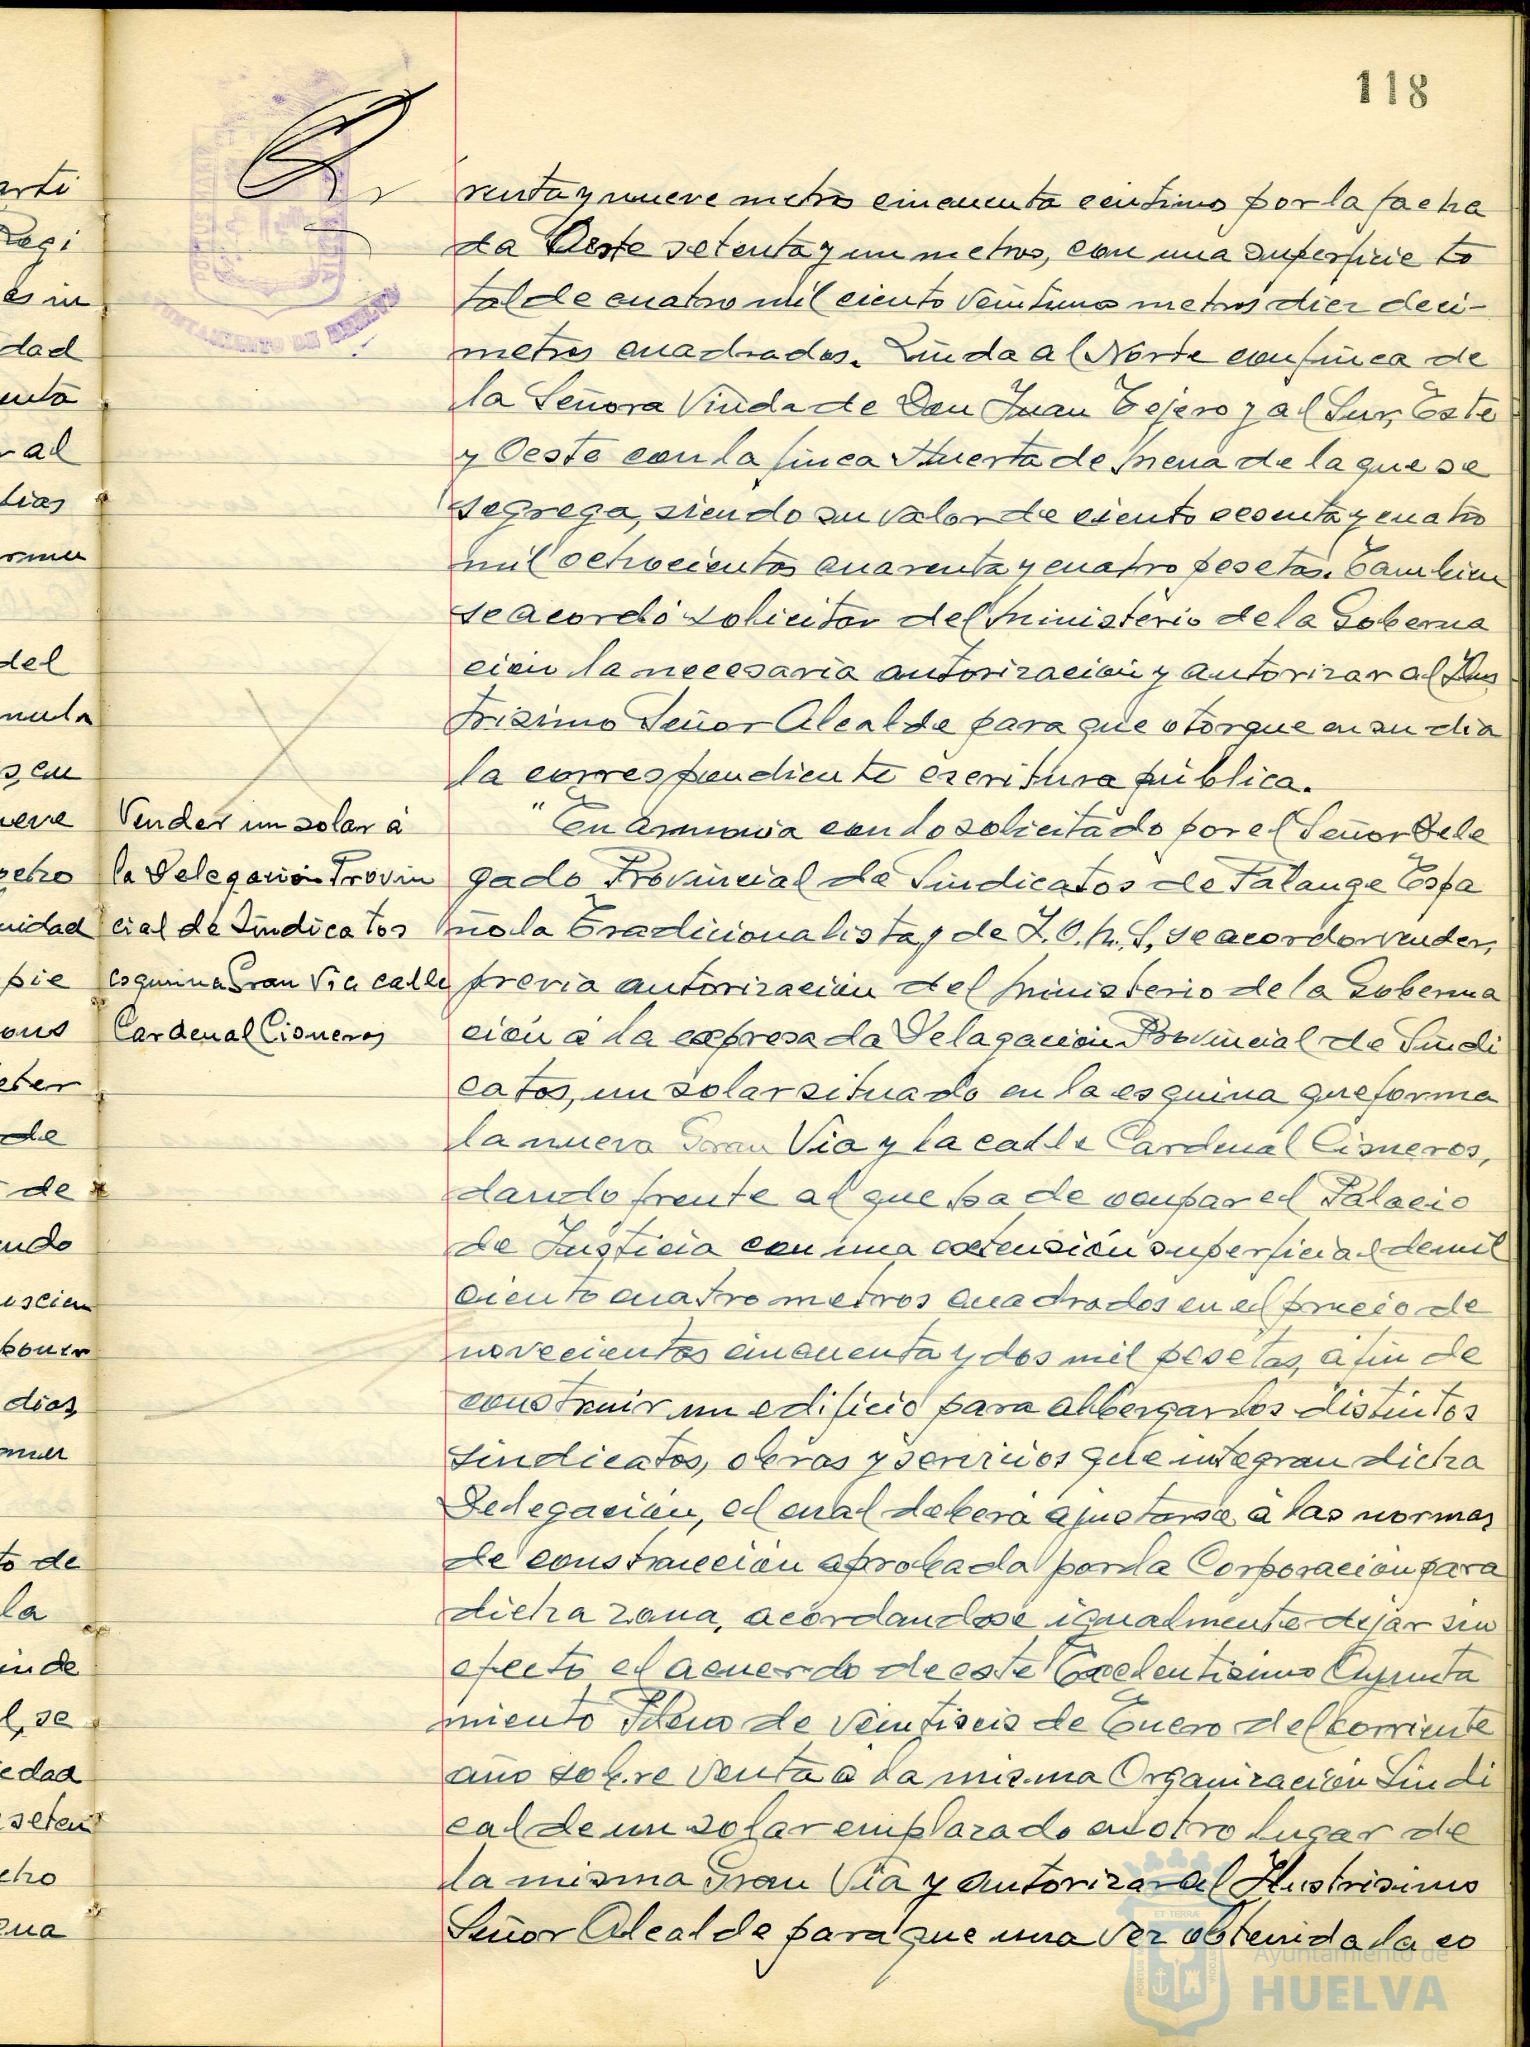 118
renta y nueve metros cincuenta centimos por la facha
da Oeste setenta y un metros, con una superficie to
tal de cuatro mil ciento veintiuno metros diez deci-
metros cuadrados. Linda al Norte con finca de
la Señora Viuda de Don Juan Tejero y al Sur, Este
y Oeste con la finca Huerta de Mena de la que se
segrega, siendo su valor de ciento sesenta y cuatro
mil ochocientos cuarenta y cuatro pesetas. Tambien
se acordó solicitar del Ministerio de la Goberna
ción la necesaria autorización y autorizar al Ilus
trisimo Señor Alcalde para que otorgue en su dia
la correspondiente escritura pública.
Vender un solar á
la Delegación Provin
cial de Sindicatos
esquina Gran Via calle
Cardenal Cisneros
" En armonia con lo solicitado por el Señor Dele
gado Provincial de Sindicatos de Falange Espa
ñola Tradicionalista y de J.O.N.S, se acordó vender,
previa autorización del Ministerio de la Goberna
ción á la expresada Delagación Provincial de Sindi
catos, un solar situado en la esquina que forma
la nueva Gran Via y la calle Cardenal Cisneros,
dando frente al que ha de ocupar el Palacio
de Justicia con una extensión superficial de mil
ciento cuatro metros cuadrados en el precio de
novecientos cincuenta y dos mil pesetas, á fin de
construir un edificio para albergar los distintos
sindicatos, obras y servicios que integran dicha
Delegación, el cual deberá ajustarse á las normas
de construcción aprobada por la Corporación para
dicha zona, acordandose igualmente dejar sin
efecto el acuerdo de este Excelentisimo Ayunta
miento Pleno de veintiseis de Enero del corriente
año sobre venta á la misma Organización Sindi
cal de un solar emplazado en otro lugar de
la misma Gran Via y autorizar al Ilustrisimo
Señor Alcalde para que una vez obtenida la co
Ayuntamiento de
HUELVA